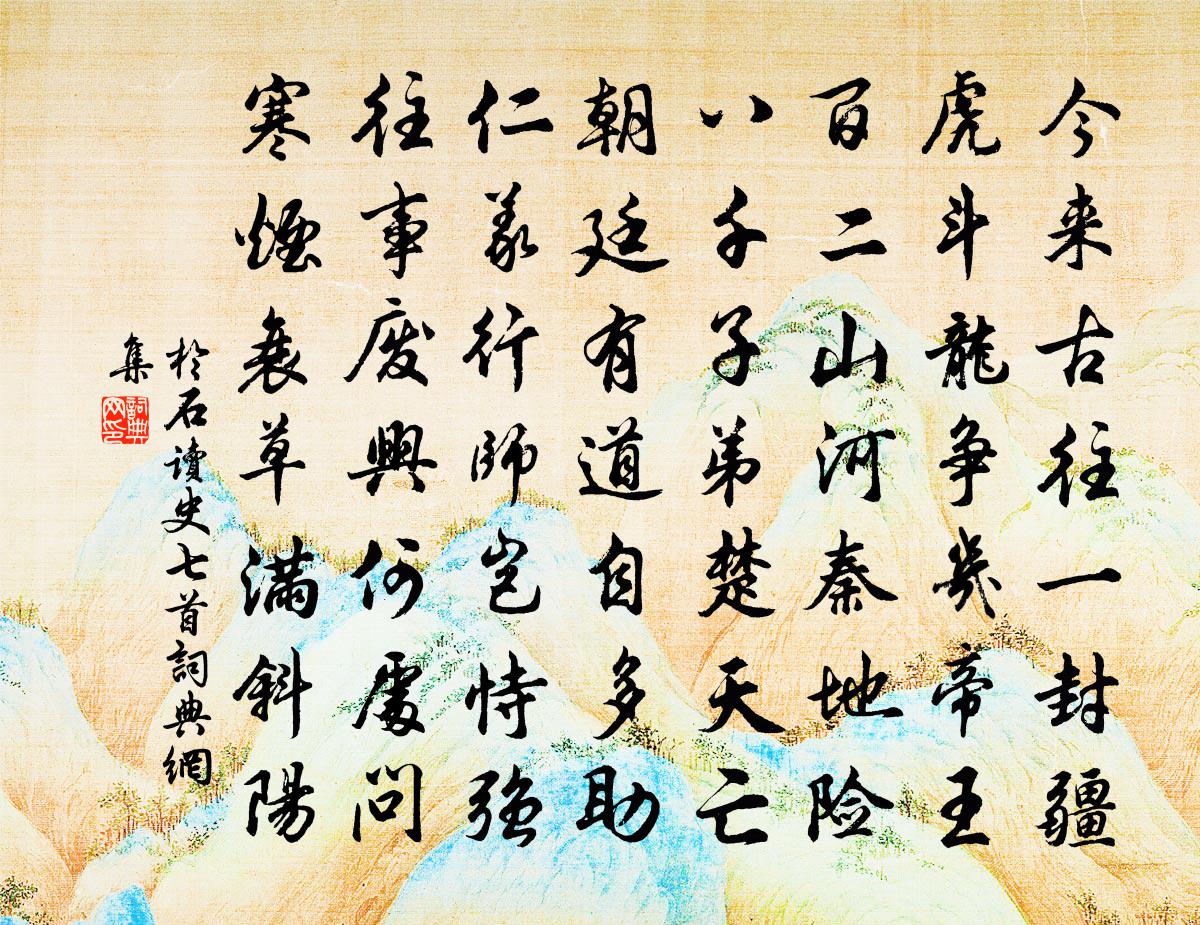 今来古往一封疆
虎斗龍争幾帝王
百二山河秦地险
八千子弟楚天亡
朝廷有道自多助
仁義行師岂恃強
往事废興何處問
寒煙衰草满斜陽
於石读史七首詞典網
集
詞典
网印